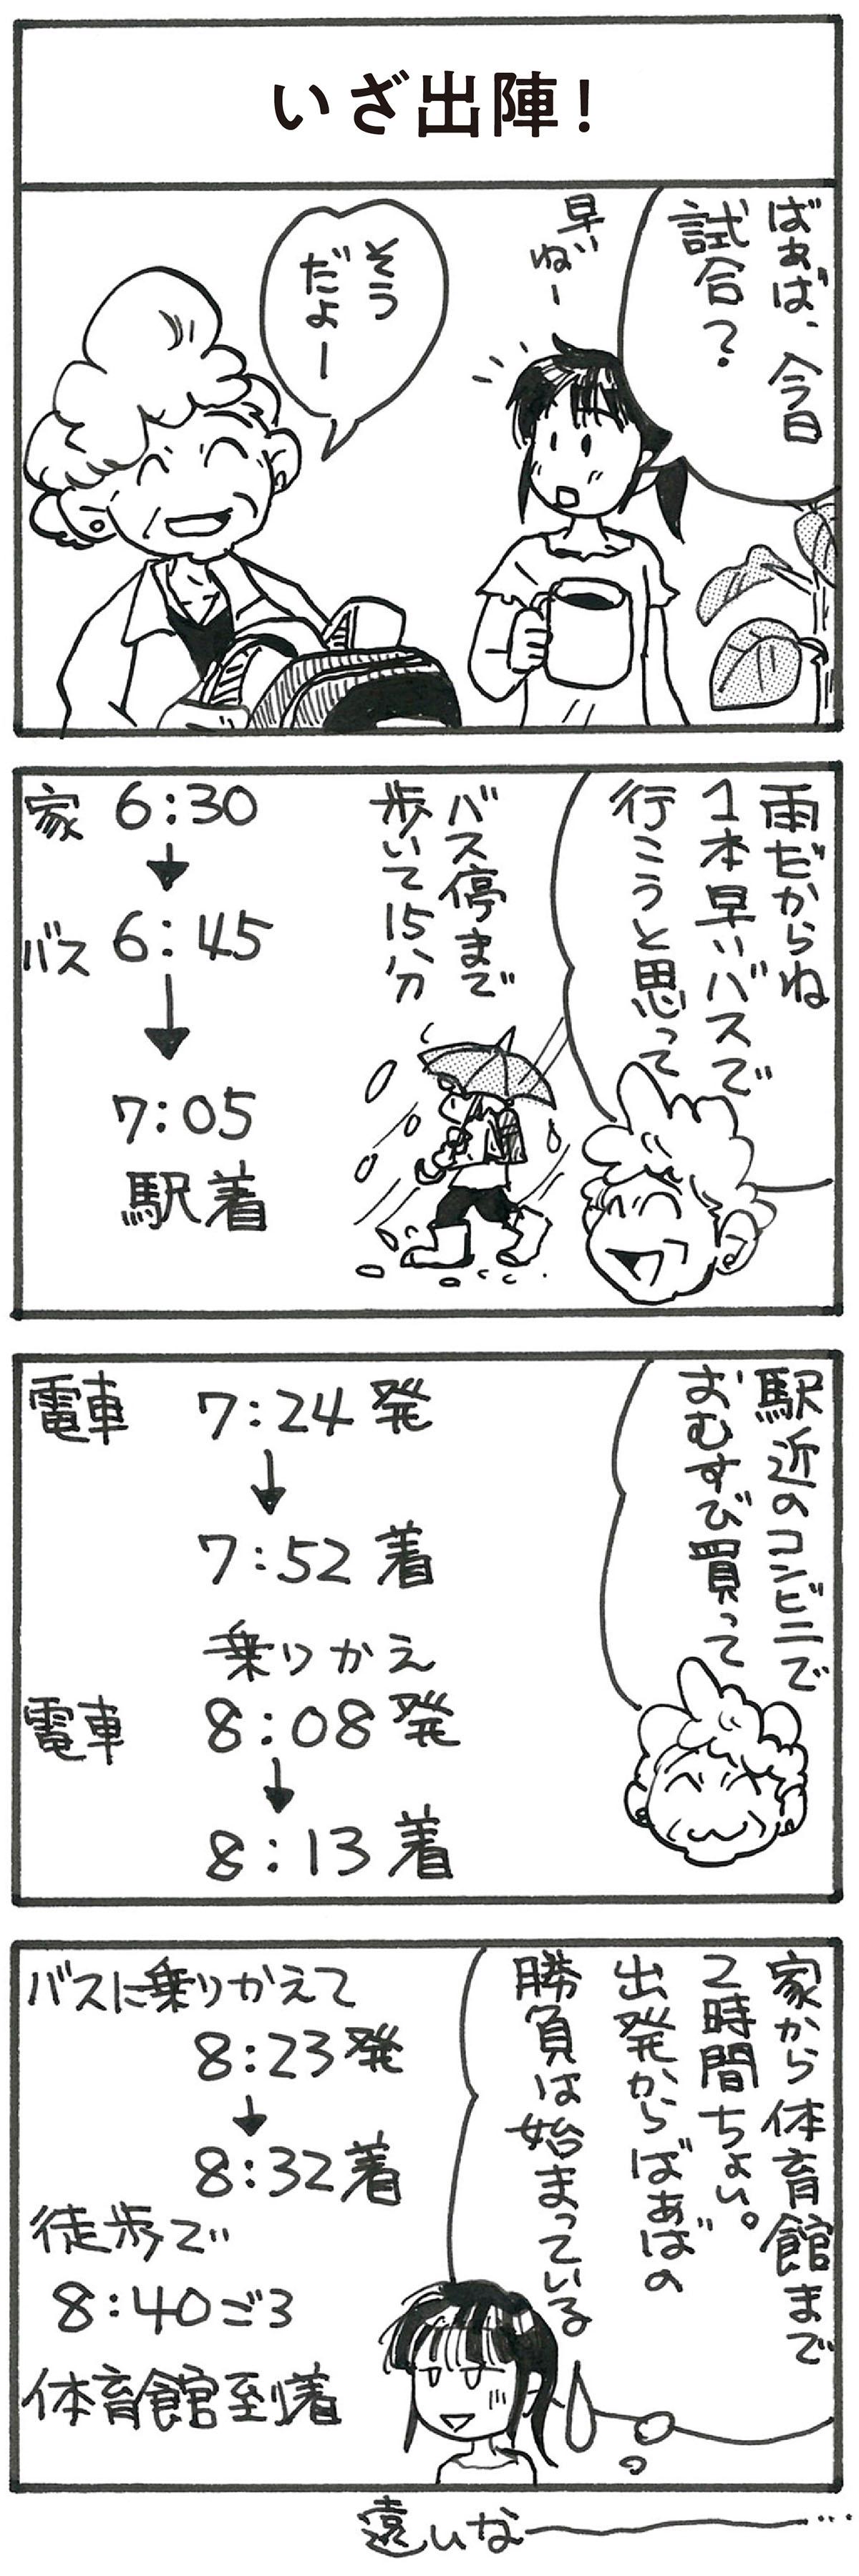 いざ出陣!
ばぁば、今日
試合?
早いねー
そう
だよー
雨だからね
1本早いバスで
行こうと思って
バス停まで
歩いて15分
家 6:30
バス 6:45
7:05
駅着
駅近のコンビニで
おむすび買って
電車 7:24発
7:52着
乗りかえ
電車 8:08発
8:13着
家から体育館まで
2時間ちょい。
出発からばぁばの
勝負は始まっている
バスに乗りかえて
8:23発
8:32着
徒歩で
8:40ごろ
体育館到着
遠いなー…